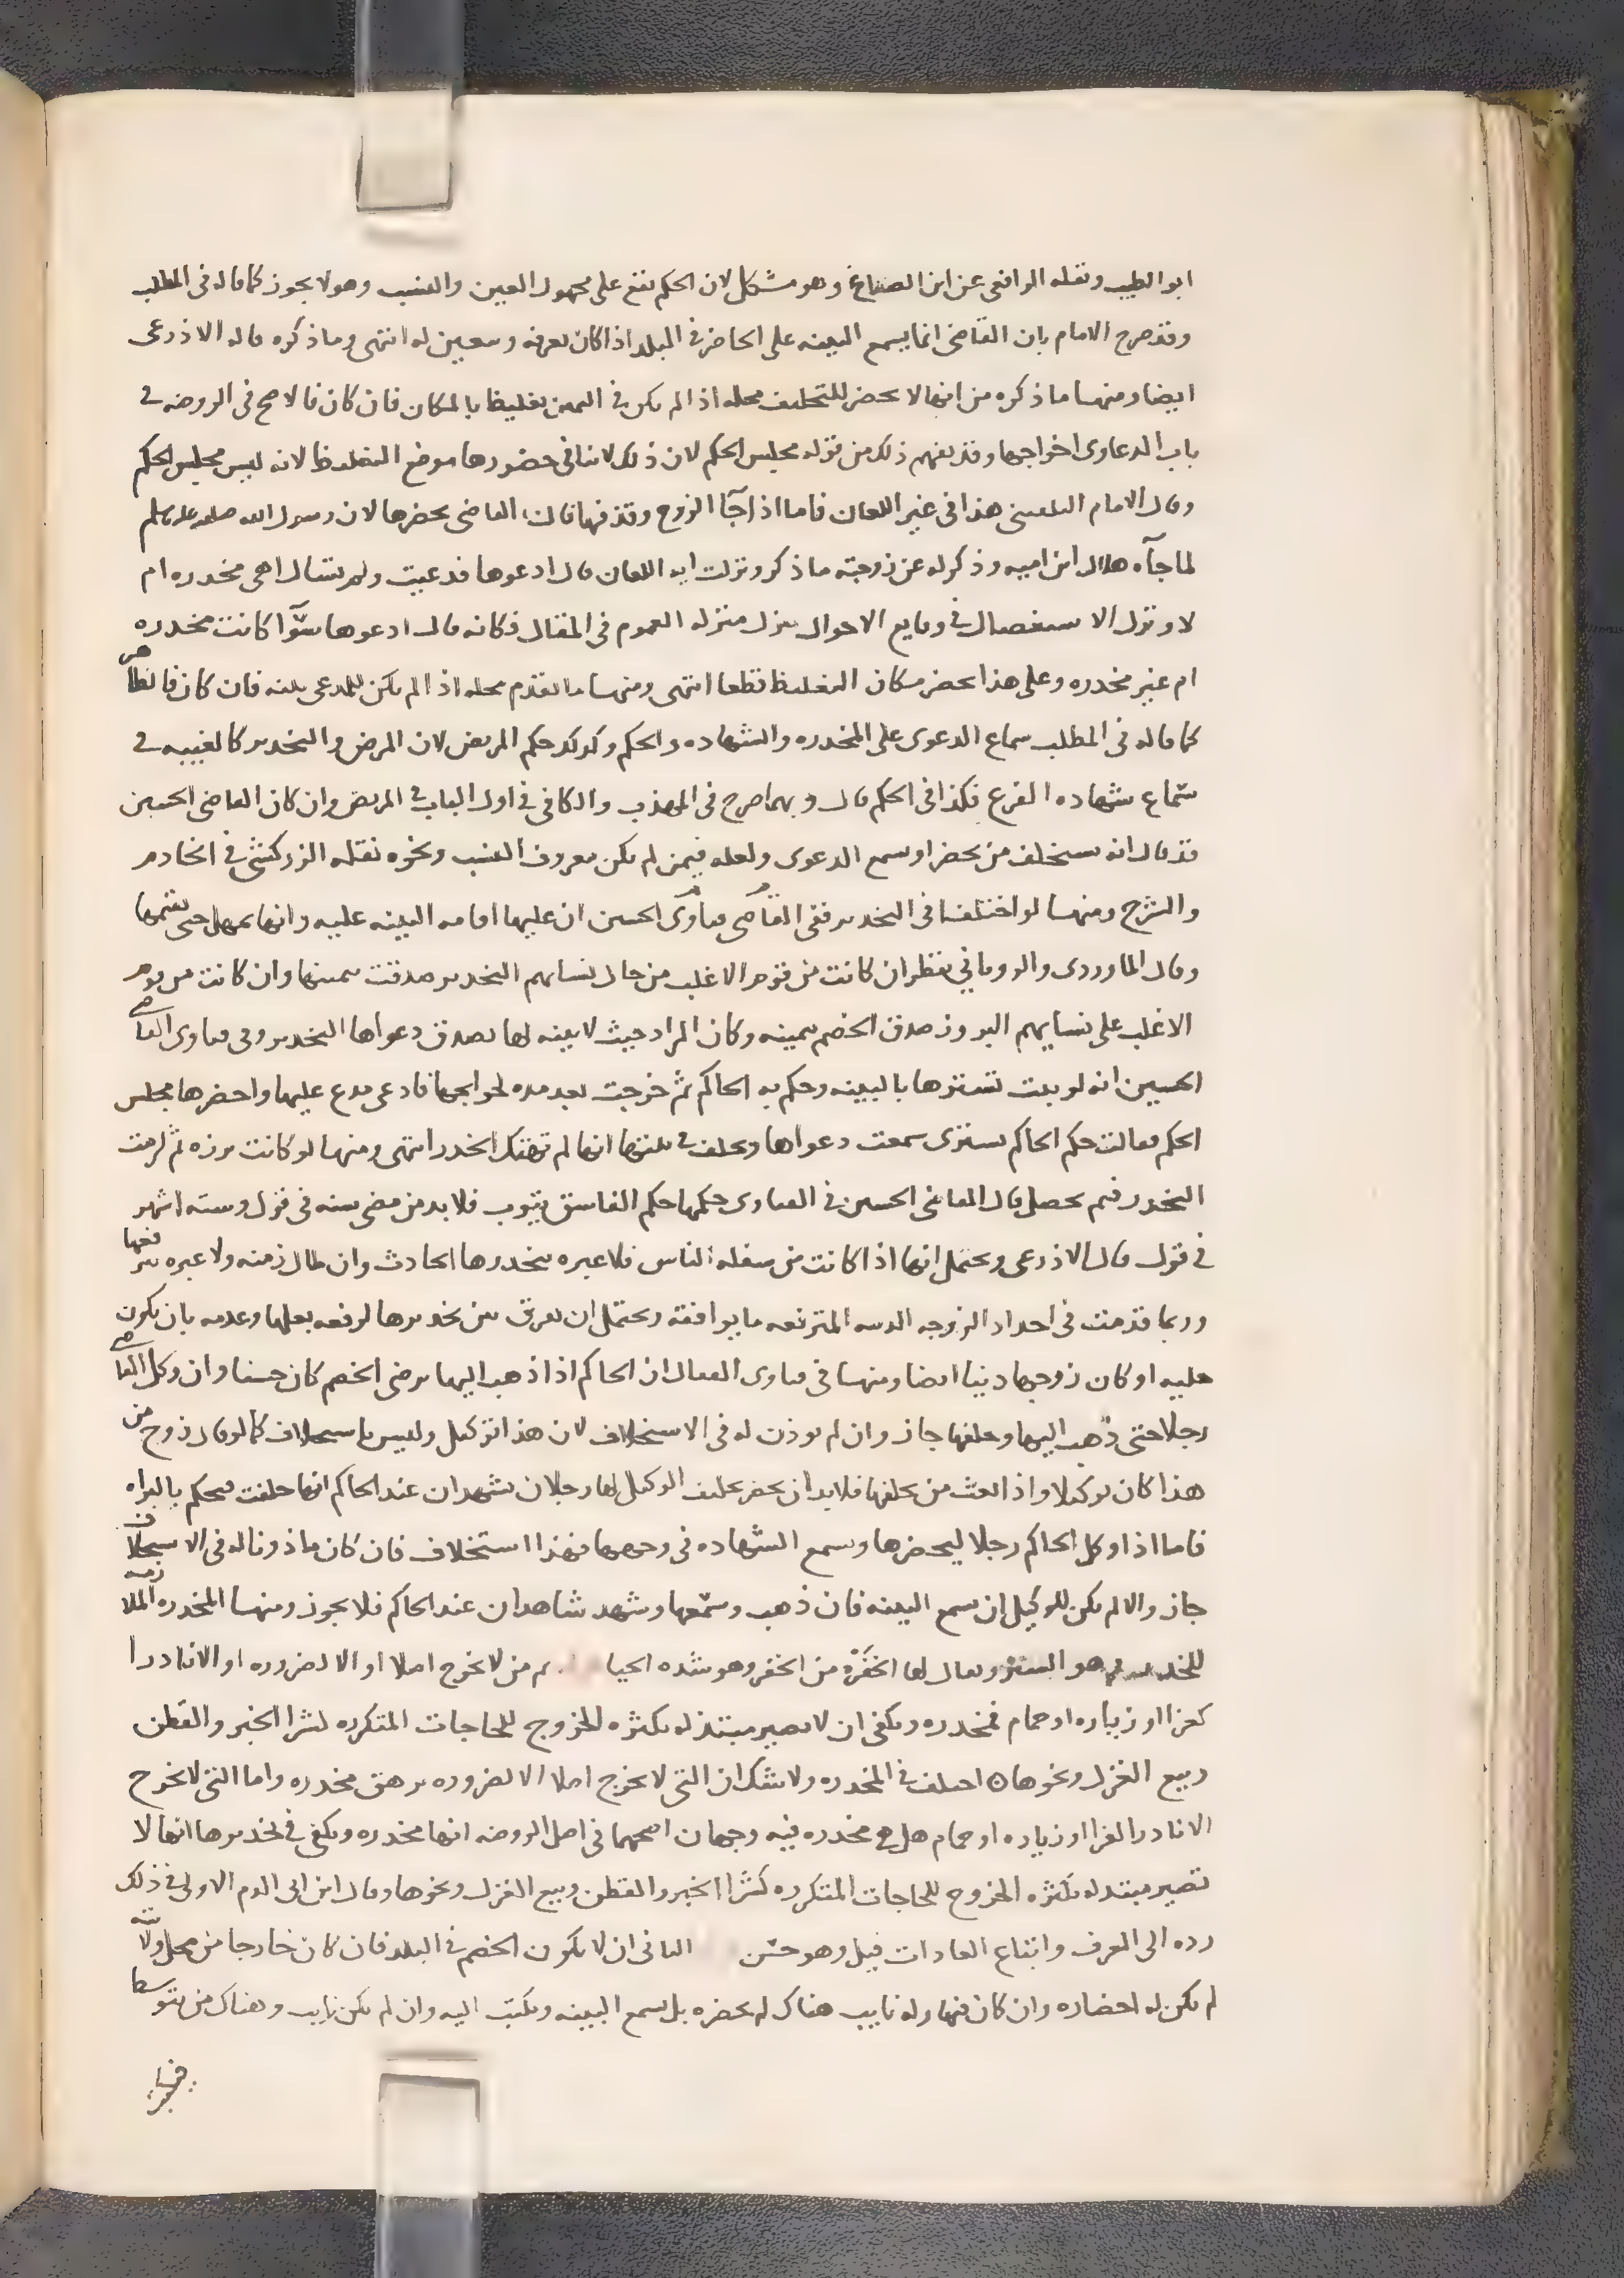 ابو الطيب ونقله الرافعى عن ابن الصباغ وهو مشكل لان الحكم يقع على مجهول العين والنسب وهو لا يجوز كما قاله فى المطلب
وقد صرح الامام بان القاضى انما يسمع البينه على الحاضر فى البلد اذا كان يعرفه وسعين له انتهى وما ذكره قاله الاذرعى
ايضا ومنها ما ذكره من انها لا تحضر للتحليف محله اذا لم يكن فى اليمين تغليظ بالمكان فان كان فالاصح فى الروضه فى
باب الدعاوى اخراجها وقد يفهم ذلك من قوله مجلس الحكم لان ذلك لا ينافى حضورها موضع التغليظ لانه ليس مجلس الحكم
وقال الامام البلقينى هذا فى غير اللعان فاما اذا جآ الزوج وقذفها فان القاضى يحضرها لان رسول الله صلى الله عليه وسلم
لما جآه هلال ابن اميه وذكر له عن زوجته ما ذكر ونزلت ايه اللعان قال ادعوها فدعيت ولم يسال اهى مخدره ام
لا وترك الاستفصال فى وقايع الاحوال ينزل منزله العموم فى المقال فكانه قال ادعوها سوآ كانت مخدره
ام غير مخدره وعلى هذا تحضر مكان التغليظ قطعا انتهى ومنها ما تقدم محله اذا لم يكن للمدعى بينه فان كان فالظاهر
كما قاله فى المطلب سماع الدعوى على المخدره والشهاده والحكم وكذلك حكم المريض لان المرض والتخدير كالغيبه فى
سماع شهاده الفرع فكذا فى الحكم قال وبهما صرح فى المهذب والكافى فى اول الباب فى المريض وان كان القاضى الحسين
قد قال انه يستخلف من يحضر او يسمع الدعوى ولعله فيمن لم يكن معروف النسب ونحوه نقله الزركشى فى الخادم
والشرح ومنها لو اختلفا فى التخدير ففى القاضى فتاوى الحسين ان عليها اقامه البينه عليه وانها تمهل حتى تقيمها
وقال الماوردى والرويانى ينظر ان كانت من قوم الاغلب من حال نسايهم التخدير صدقت بيمينها وان كانت من قوم
الاغلب على نسايهم البروز صدق الخصم بيمينه وكان المراد حيث لا بينه لها تصدق دعواها التخدير وفى فتاوى القاضى
الحسين انه لو ثبت تسترها بالبينه وحكم به الحاكم ثم خرجت بعد مده لحوايجها فادعى مدع عليها واحضرها مجلس
الحكم فقالت حكم الحاكم بسترى سمعت دعواها وتحلف فى بينتها انها لم تهتك الخدر انتهى ومنها لو كانت برزه ثم لزمت
التخدر فبم يحصل قال القاضى الحسين فى الفتاوى حكمها حكم الفاسق يتوب فلا بد من مضى سنه فى قول وسته اشهر
فى قول قال الاذرعى ويحتمل انها اذا كانت من سفله الناس فلا عبره بتخدرها الحادث وان طال زمنه ولا عبره بترفعها
وربما قدمت فى احداد الزوجه الدنيه المترفعه ما يوافقه ويحتمل ان يفرق بين تخديرها لرفعه بعلها وعدمه بان يكون
عليه او كان زوجها دنيا ايضا ومنها فى فتاوى القفال ان الحاكم اذا ذهب اليها برضى الخصم كان حسنا وان وكل القاضى
رجلا حتى ذهب اليها وحلفها جاز وان لم يوذن له فى الاستخلاف لان هذا توكيل وليس باستخلاف كما لو قال زوج من
هذا كان توكيلا واذا بعث من يحلفها فلا بد ان يحضر تحليف الوكيل لها رجلان يشهدان عند الحاكم انها حلفت فيحكم بالبراه
فاما اذا وكل الحاكم رجلا ليحضرها ويسمع الشهاده فى وجهها فهذا استخلاف فان كان ماذونا له فى الاستخلاف
جاز والا لم يكن للوكيل ان يسمع البينه فان ذهب وسمعها وشهد شاهدان عند الحاكم فلا يجوز ومنها المخدره الملازمه
للخدر وهو الستر ويقال لها الخفره من الخفر وهو شده الحيا من لا تخرج اصلا او الا لضروره او الا نادرا
كعزا او زياره او حمام فمخدره ويكفى ان لا تصير مبتذله بكثره الخروج للحاجات المتكرره لشرا الخبز والقطن
وبيع الغزل ونحوها ه اختلف فى المخدره ولا شك ان التى لا تخرج اصلا الا لضروره مرهق مخدره واما التى لا تخرج
الا نادرا لعزا او زياره او حمام هل هى مخدره فيه وجهان اصحهما فى اصل الروضه انها مخدره ويكفى فى تخديرها انها لا
تصير مبتذله بكثره الخروج للحاجات المتكرره كشرا الخبز والقطن وبيع الغزل ونحوها وقال ابن ابى الدم الاولى فى ذلك
رده الى العرف واتباع العادات قيل وهو حسن الثانى ان لا يكون الخصم فى البلد فان كان خارجا من محل ولايته
لم يكن له احضاره وان كان فيها وله نايب هناك لم يحضره بل يسمع البينه ويكتب اليه وان لم يكن نايب وهناك من يتوسط